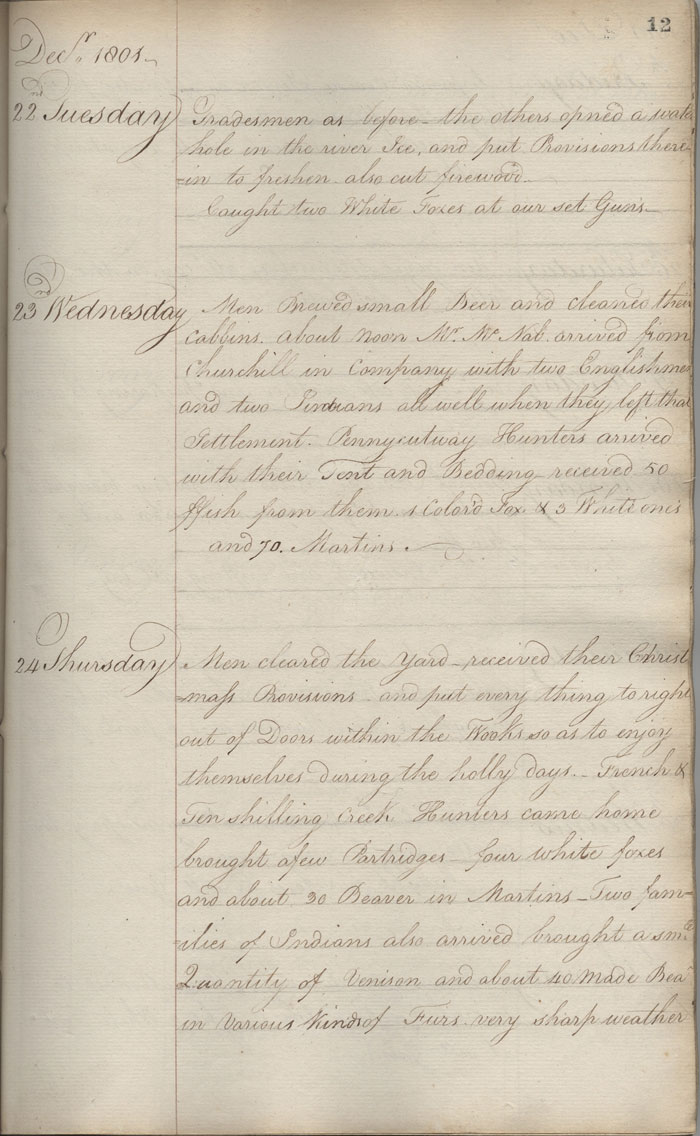 12
Decr. 1801
22nd Tuesday Tradesmen as before - the others opned a wate
hole in the river Ice, and put Provisions there
=in to freshen also cut firewood
Caught two White Foxes at our set Guns
23rd Wednesday Men Brewed small Beer and cleaned their
Cabbins. about noon Mr. Mc Nab. arrived from
Churchill in Company with two Englishmen
and two Indians all well when they left that
Settlement. Pennycutway Hunters arrived
with their Tent and Bedding received 50
ffish from them 1 Colord Fox & 3 White ones
and 70. Martins.
24 Thursday Men cleared the Yard - received their Christ
=mass Provisions and put every thing to right
out of Doors within the Wooks so as to enjoy
themselves during the holly days. - French &
Ten shilling Creek Hunters came home
brought a few Partridges four white foxes
and about 30 Beaver in Martins - Two fam=
=ilies of Indians also arrived brought a sma
Quantity of Venison and about 40 Made Bea
in Various Kinds of Furs very sharp weather